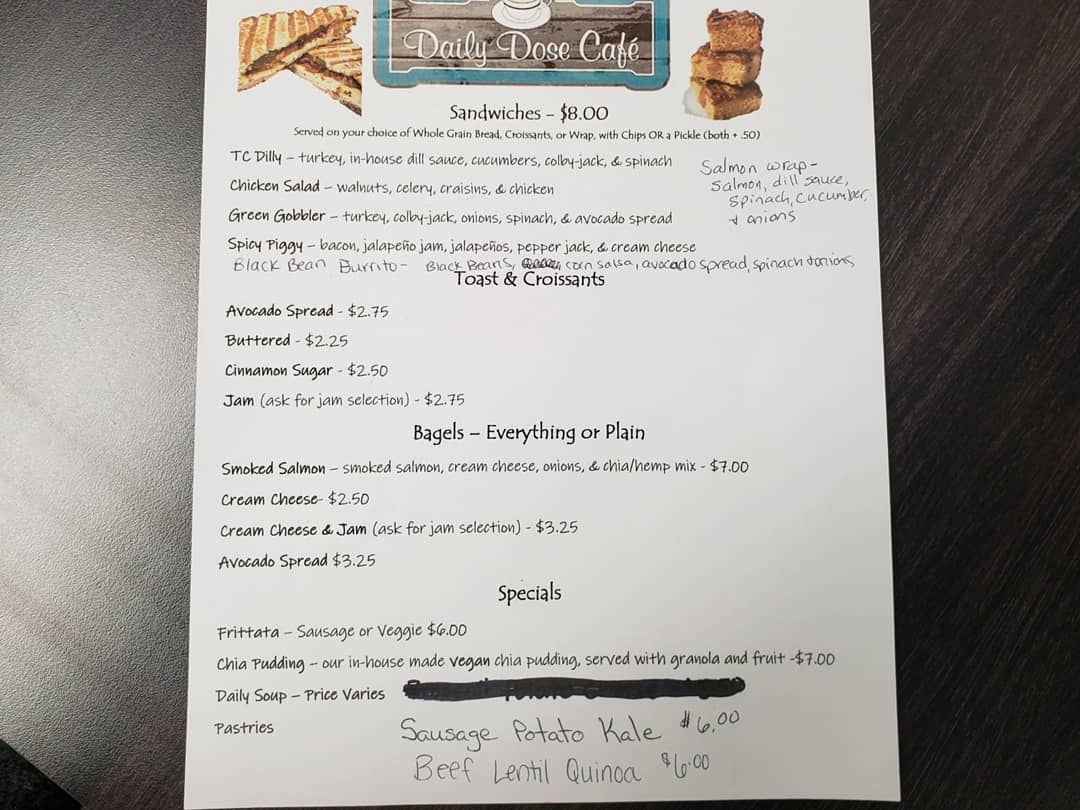 Daily Dose Café
Sandwiches – $8.00
Served on your choice of Whole Grain Bread, Croissants, or Wrap, with Chips OR a Pickle (both + .50)
TC Dilly – turkey, in-house dill sauce, cucumbers, colby-jack, & spinach
Salmon wrap-
salmon, dill sauce,
spinach, cucumber,
+ onions
Chicken Salad – walnuts, celery, craisins, & chicken
Green Gobbler – turkey, colby-jack, onions, spinach, & avocado spread
Spicy Piggy – bacon, jalapeño jam, jalapeños, pepper jack, & cream cheese
Black Bean Burrito- Black Beans, corn salsa, avocado spread, spinach + onions
Toast & Croissants
Avocado Spread - $2.75
Buttered - $2.25
Cinnamon Sugar - $2.50
Jam (ask for jam selection) - $2.75
Bagels – Everything or Plain
Smoked Salmon – smoked salmon, cream cheese, onions, & chia/hemp mix - $7.00
Cream Cheese- $2.50
Cream Cheese & Jam (ask for jam selection) - $3.25
Avocado Spread $3.25
Specials
Frittata – Sausage or Veggie $6.00
Chia Pudding – our in-house made vegan chia pudding, served with granola and fruit -$7.00
Daily Soup – Price Varies
Pastries
Sausage Potato Kale $6.00
Beef Lentil Quinoa $6.00